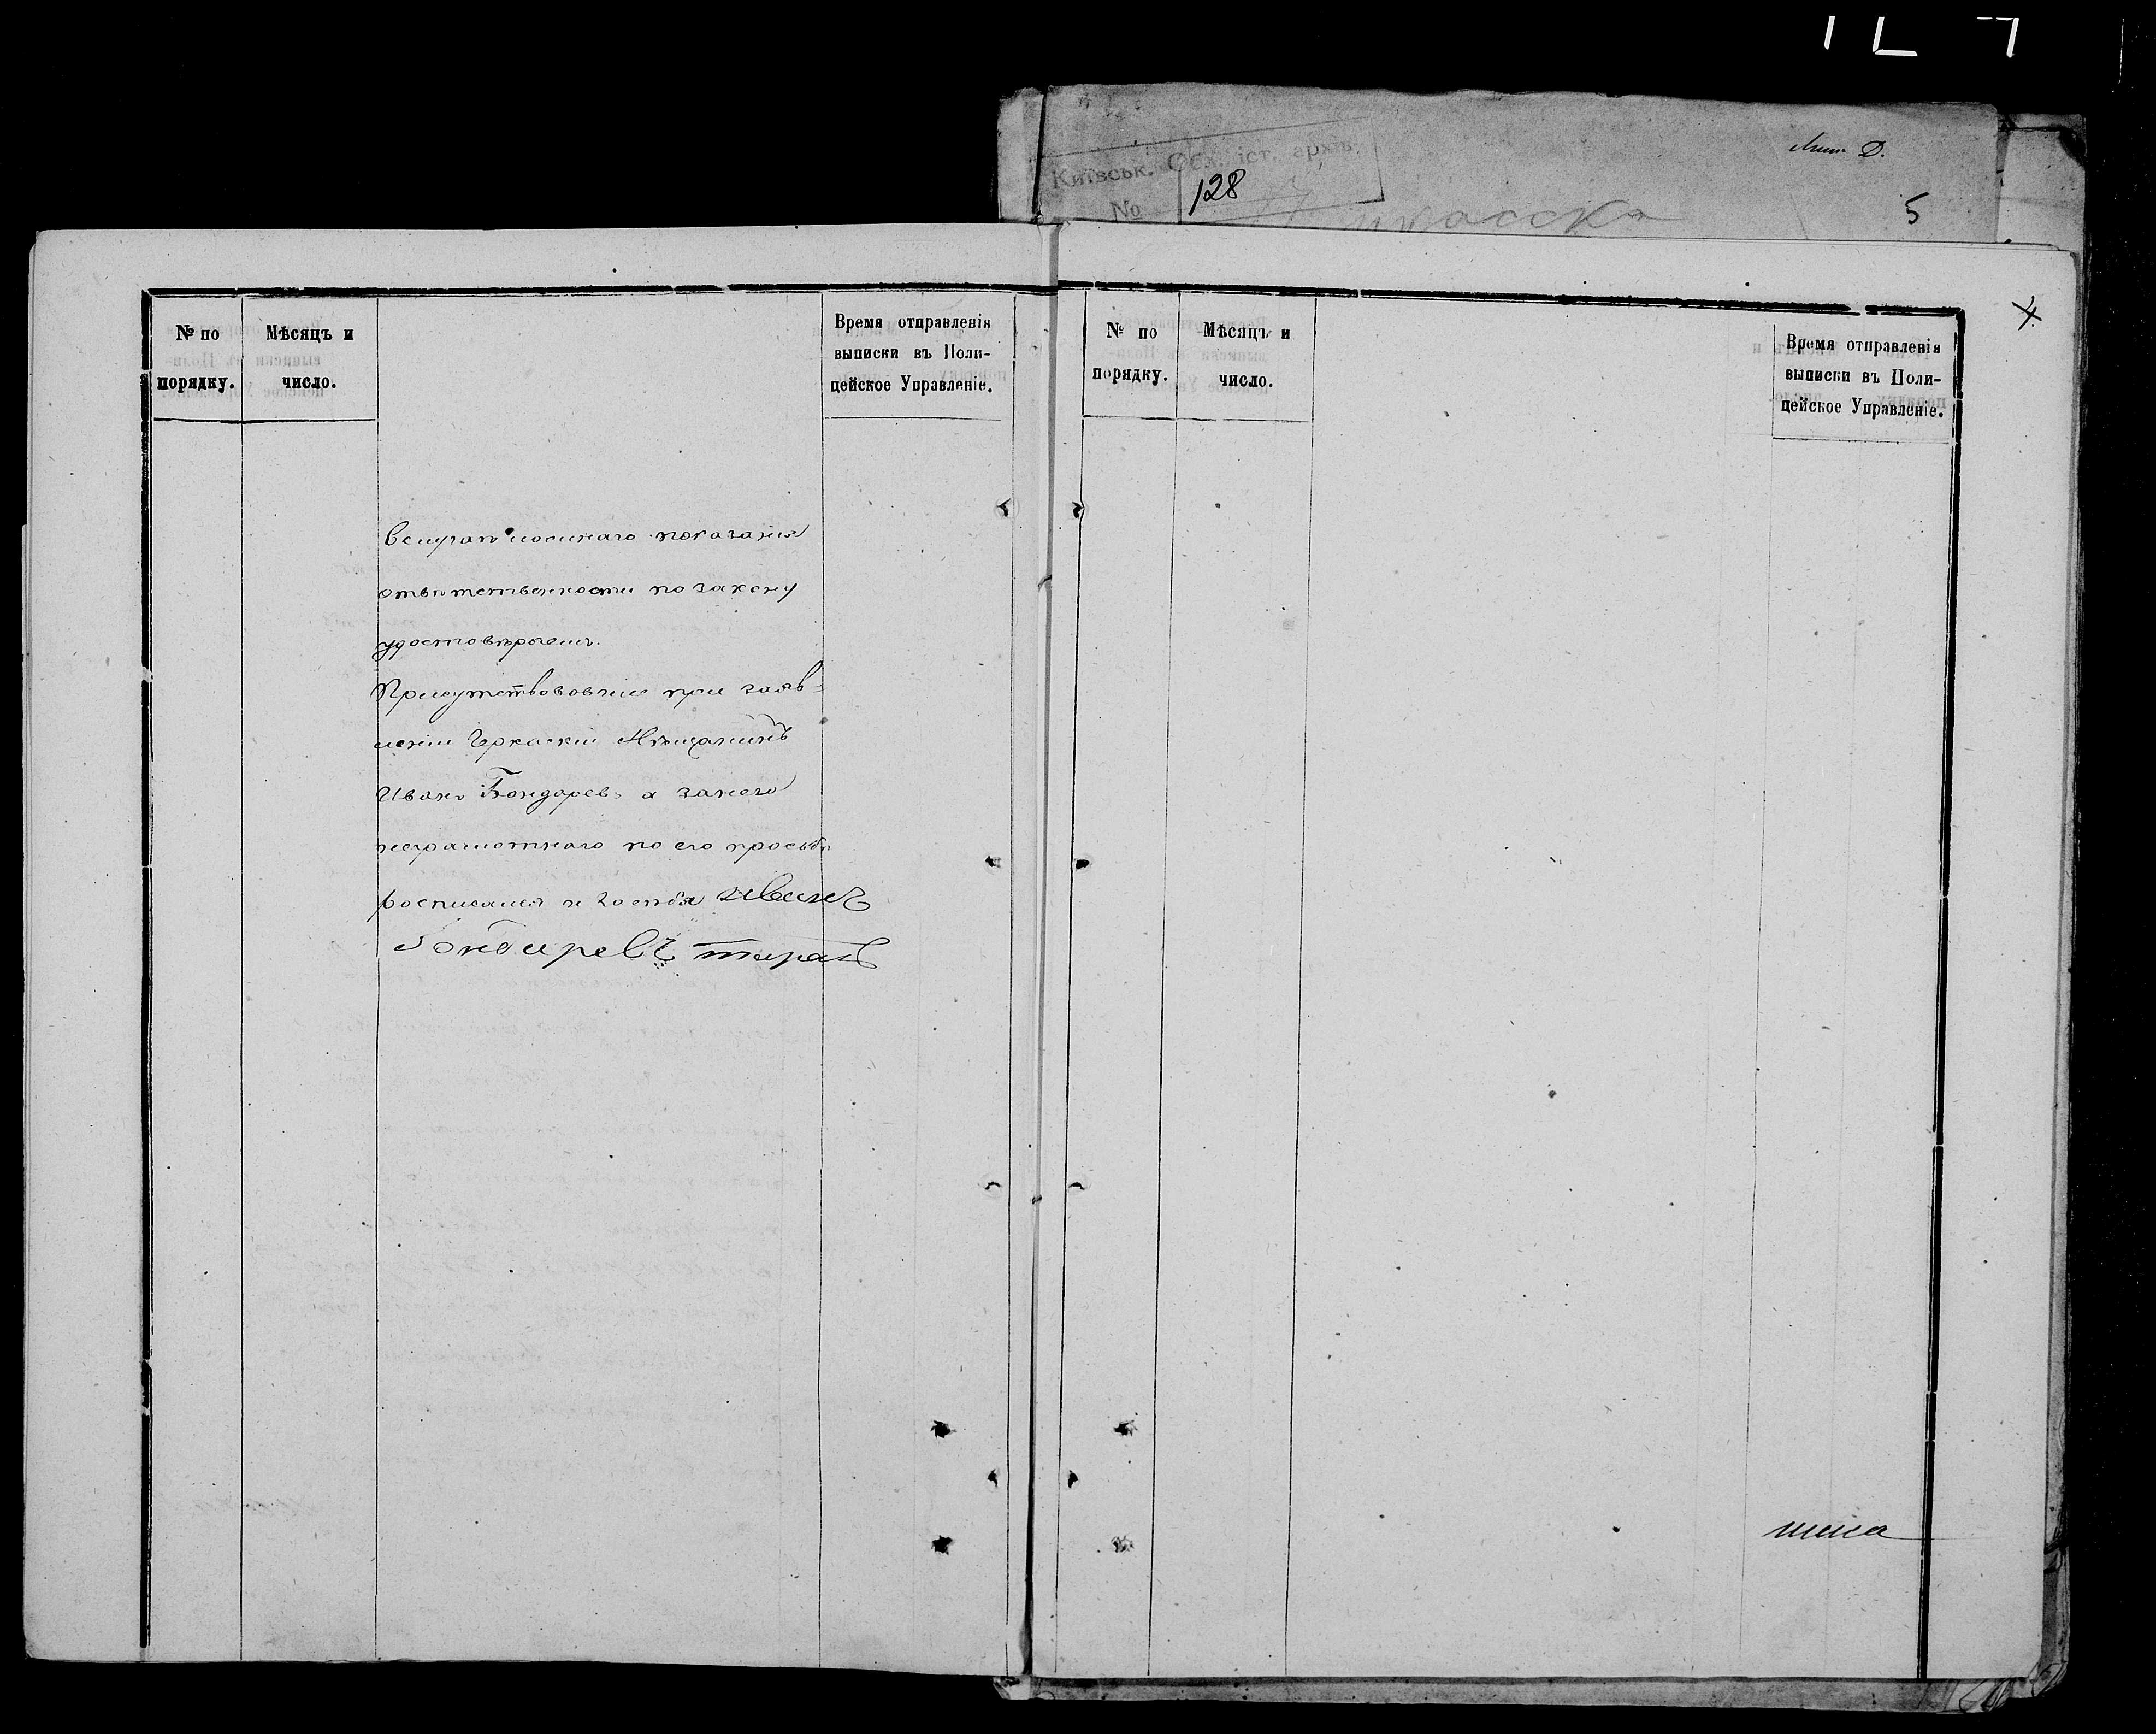 Київськ. Обл. іст. архів.
№ 128
5
№ по порядку.
Мѣсяцъ и число.
Время отправленія
выписки въ Поли-
цейское Управленіе.
вслучаи ложнаго показания
отвѣтственности по закону
удостовѣряемъ.
Присутствововшие при заяв-
лении Черкаский Мѣщанинъ
Иванъ Бондаревъ а занего
неграмотнаго по его просьбѣ
росписался
Иванъ
№ по порядку.
Мѣсяцъ и число.
Время отправленія
выписки въ Поли-
цейское Управленіе.